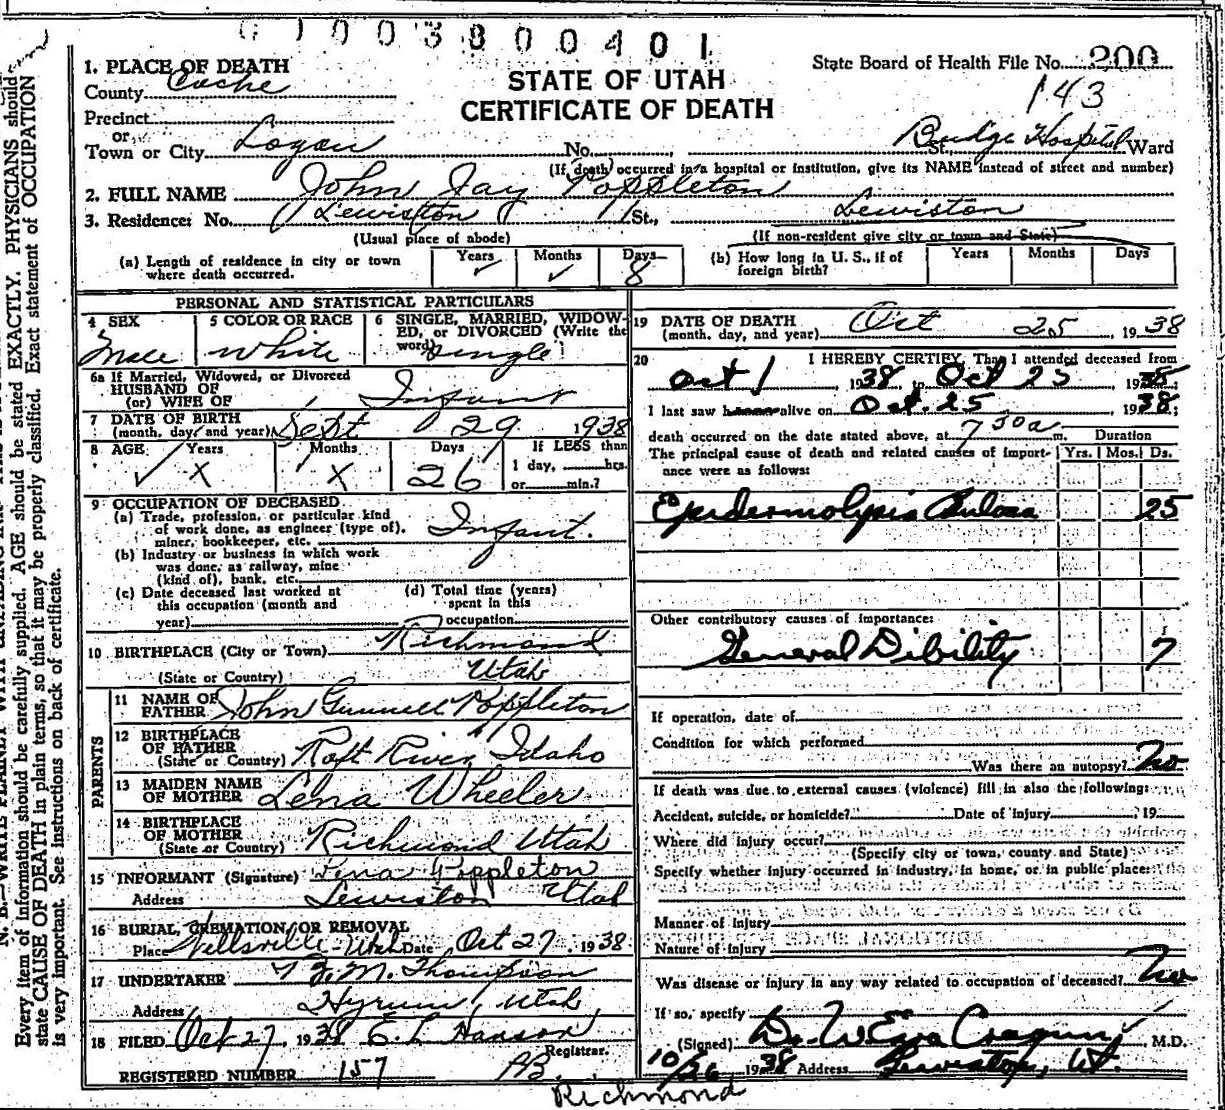 G 1 0 0 3 8 0 0 4 0 1
State Board of Health File No. 200
143
STATE OF UTAH
CERTIFICATE OF DEATH
1. PLACE OF DEATH
County Cache
Precinct
or
Town or City Logan No. , St. Budge Hospital Ward
(If death occurred in a hospital or institution, give its NAME instead of street and number)
2. FULL NAME John Jay Poppleton
3. Residence: No. Lewiston St., Lewiston
(Usual place of abode) (If non-resident give city or town and State)
(a) Length of residence in city or town where death occurred. Years ✓ Months ✓ Days 8
(b) How long in U. S., if of foreign birth? Years Months Days
PERSONAL AND STATISTICAL PARTICULARS
4 SEX Male
5 COLOR OR RACE White
6 SINGLE, MARRIED, WIDOWED, or DIVORCED (Write the word) Single
6a If Married, Widowed, or Divorced
HUSBAND OF
(or) WIFE OF Infant
7 DATE OF BIRTH
(month, day, and year) Sept 29 1938
8 AGE Years X Months X Days 26
If LESS than
1 day, hrs.
or min.?
9 OCCUPATION OF DECEASED
(a) Trade, profession, or particular kind
of work done, as engineer (type of),
miner, bookkeeper, etc. Infant.
(b) Industry or business in which work
was done, as railway, mine
(kind of), bank, etc.
(c) Date deceased last worked at
this occupation (month and
year)
(d) Total time (years)
spent in this
occupation
10 BIRTHPLACE (City or Town) Richmond
(State or Country) Utah
PARENTS
11 NAME OF
FATHER John Gunnell Poppleton
12 BIRTHPLACE
OF FATHER
(State or Country) Raft River, Idaho
13 MAIDEN NAME
OF MOTHER Lena Wheeler
14 BIRTHPLACE
OF MOTHER
(State or Country) Richmond Utah
15 INFORMANT (Signature) Lena Poppleton
Address Lewiston Utah
16 BURIAL, CREMATION, OR REMOVAL
Place Wellsville Utah Date Oct 27, 1938
17 UNDERTAKER F. M. Thompson
Address Hyrum, Utah
18 FILED Oct 27, 1938 E. L. Hanson
Registrar.
REGISTERED NUMBER 157 AB.
19 DATE OF DEATH
(month, day, and year) Oct 25, 1938
20 I HEREBY CERTIFY, That I attended deceased from
Oct 1 1938 to Oct 25, 1938;
I last saw h alive on Oct. 25, 1938;
death occurred on the date stated above, at 7 30 a m. Duration
The principal cause of death and related causes of importance were as follows: Yrs. Mos. Ds.
Epidermolysis Bulosa 25
Other contributory causes of importance:
General Dibility 7
If operation, date of
Condition for which performed
Was there an autopsy? No
If death was due to external causes (violence) fill in also the following:
Accident, suicide, or homicide? Date of injury , 19
Where did injury occur?
(Specify city or town, county and State)
Specify whether injury occurred in industry, in home, or in public place:
Manner of injury
Nature of injury
Was disease or injury in any way related to occupation of deceased? No
If so, specify
(Signed) Dr. W Ezra Cragun, M.D.
10/26, 1938 Address Lewiston, Ut.
Richmond
Every item of information should be carefully supplied. AGE should be stated EXACTLY. PHYSICIANS should
state CAUSE OF DEATH in plain terms, so that it may be properly classified. Exact statement of OCCUPATION
is very important. See instructions on back of certificate.